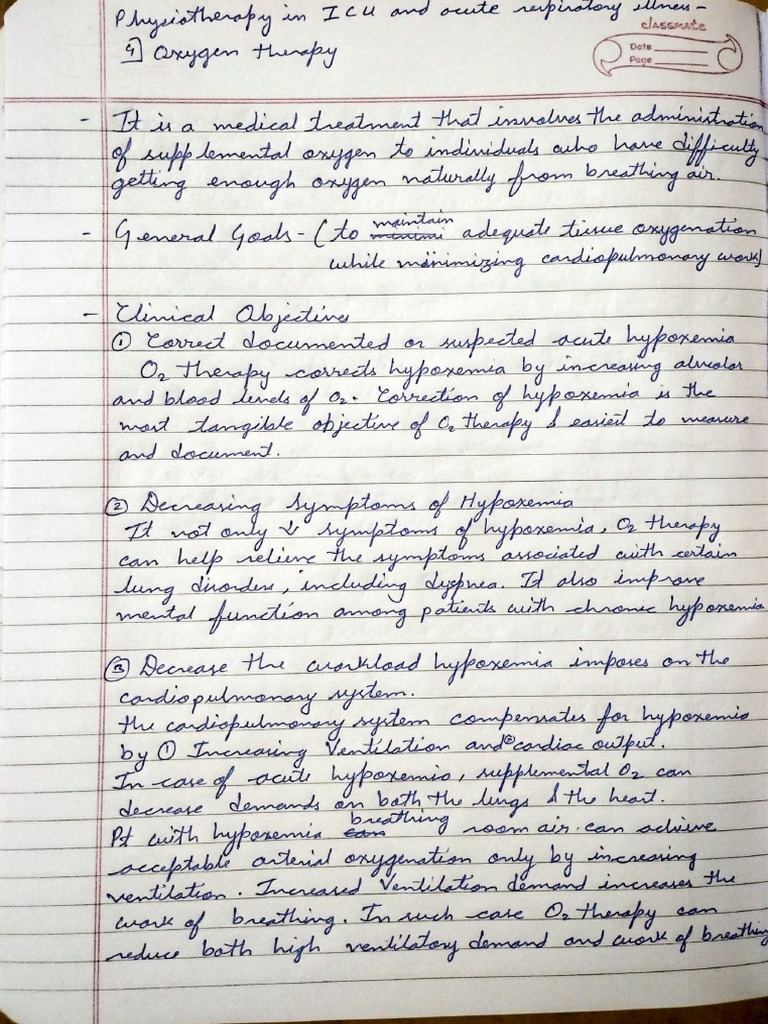 Physiotherapy in ICU and acute respiratory illness -
classmate
4] Oxygen therapy
Date
Page
- It is a medical treatment that involves the administration
of supplemental oxygen to individuals who have difficulty
getting enough oxygen naturally from breathing air.
- General Goals - (to maintain adequate tissue oxygenation
while minimizing cardiopulmonary work)
- Clinical Objectives
① Correct documented or suspected acute hypoxemia
O2 therapy corrects hypoxemia by increasing alveolar
and blood levels of O2. Correction of hypoxemia is the
most tangible objective of O2 therapy & easiest to measure
and document.
② Decreasing symptoms of Hypoxemia
It not only ↓ symptoms of hypoxemia, O2 therapy
can help relieve the symptoms associated with certain
lung disorders, including dyspnea. It also improve
mental function among patients with chronic hypoxemia
③ Decrease the workload hypoxemia imposes on the
cardiopulmonary system.
the cardiopulmonary system compensates for hypoxemia
by ① Increasing Ventilation and ② cardiac output.
In case of acute hypoxemia, supplemental O2 can
decrease demands on both the lungs & the heart.
Pt with hypoxemia breathing room air can achieve
acceptable arterial oxygenation only by increasing
ventilation. Increased Ventilation demand increases the
work of breathing. In such case O2 therapy can
reduce both high ventilatory demand and work of breathing